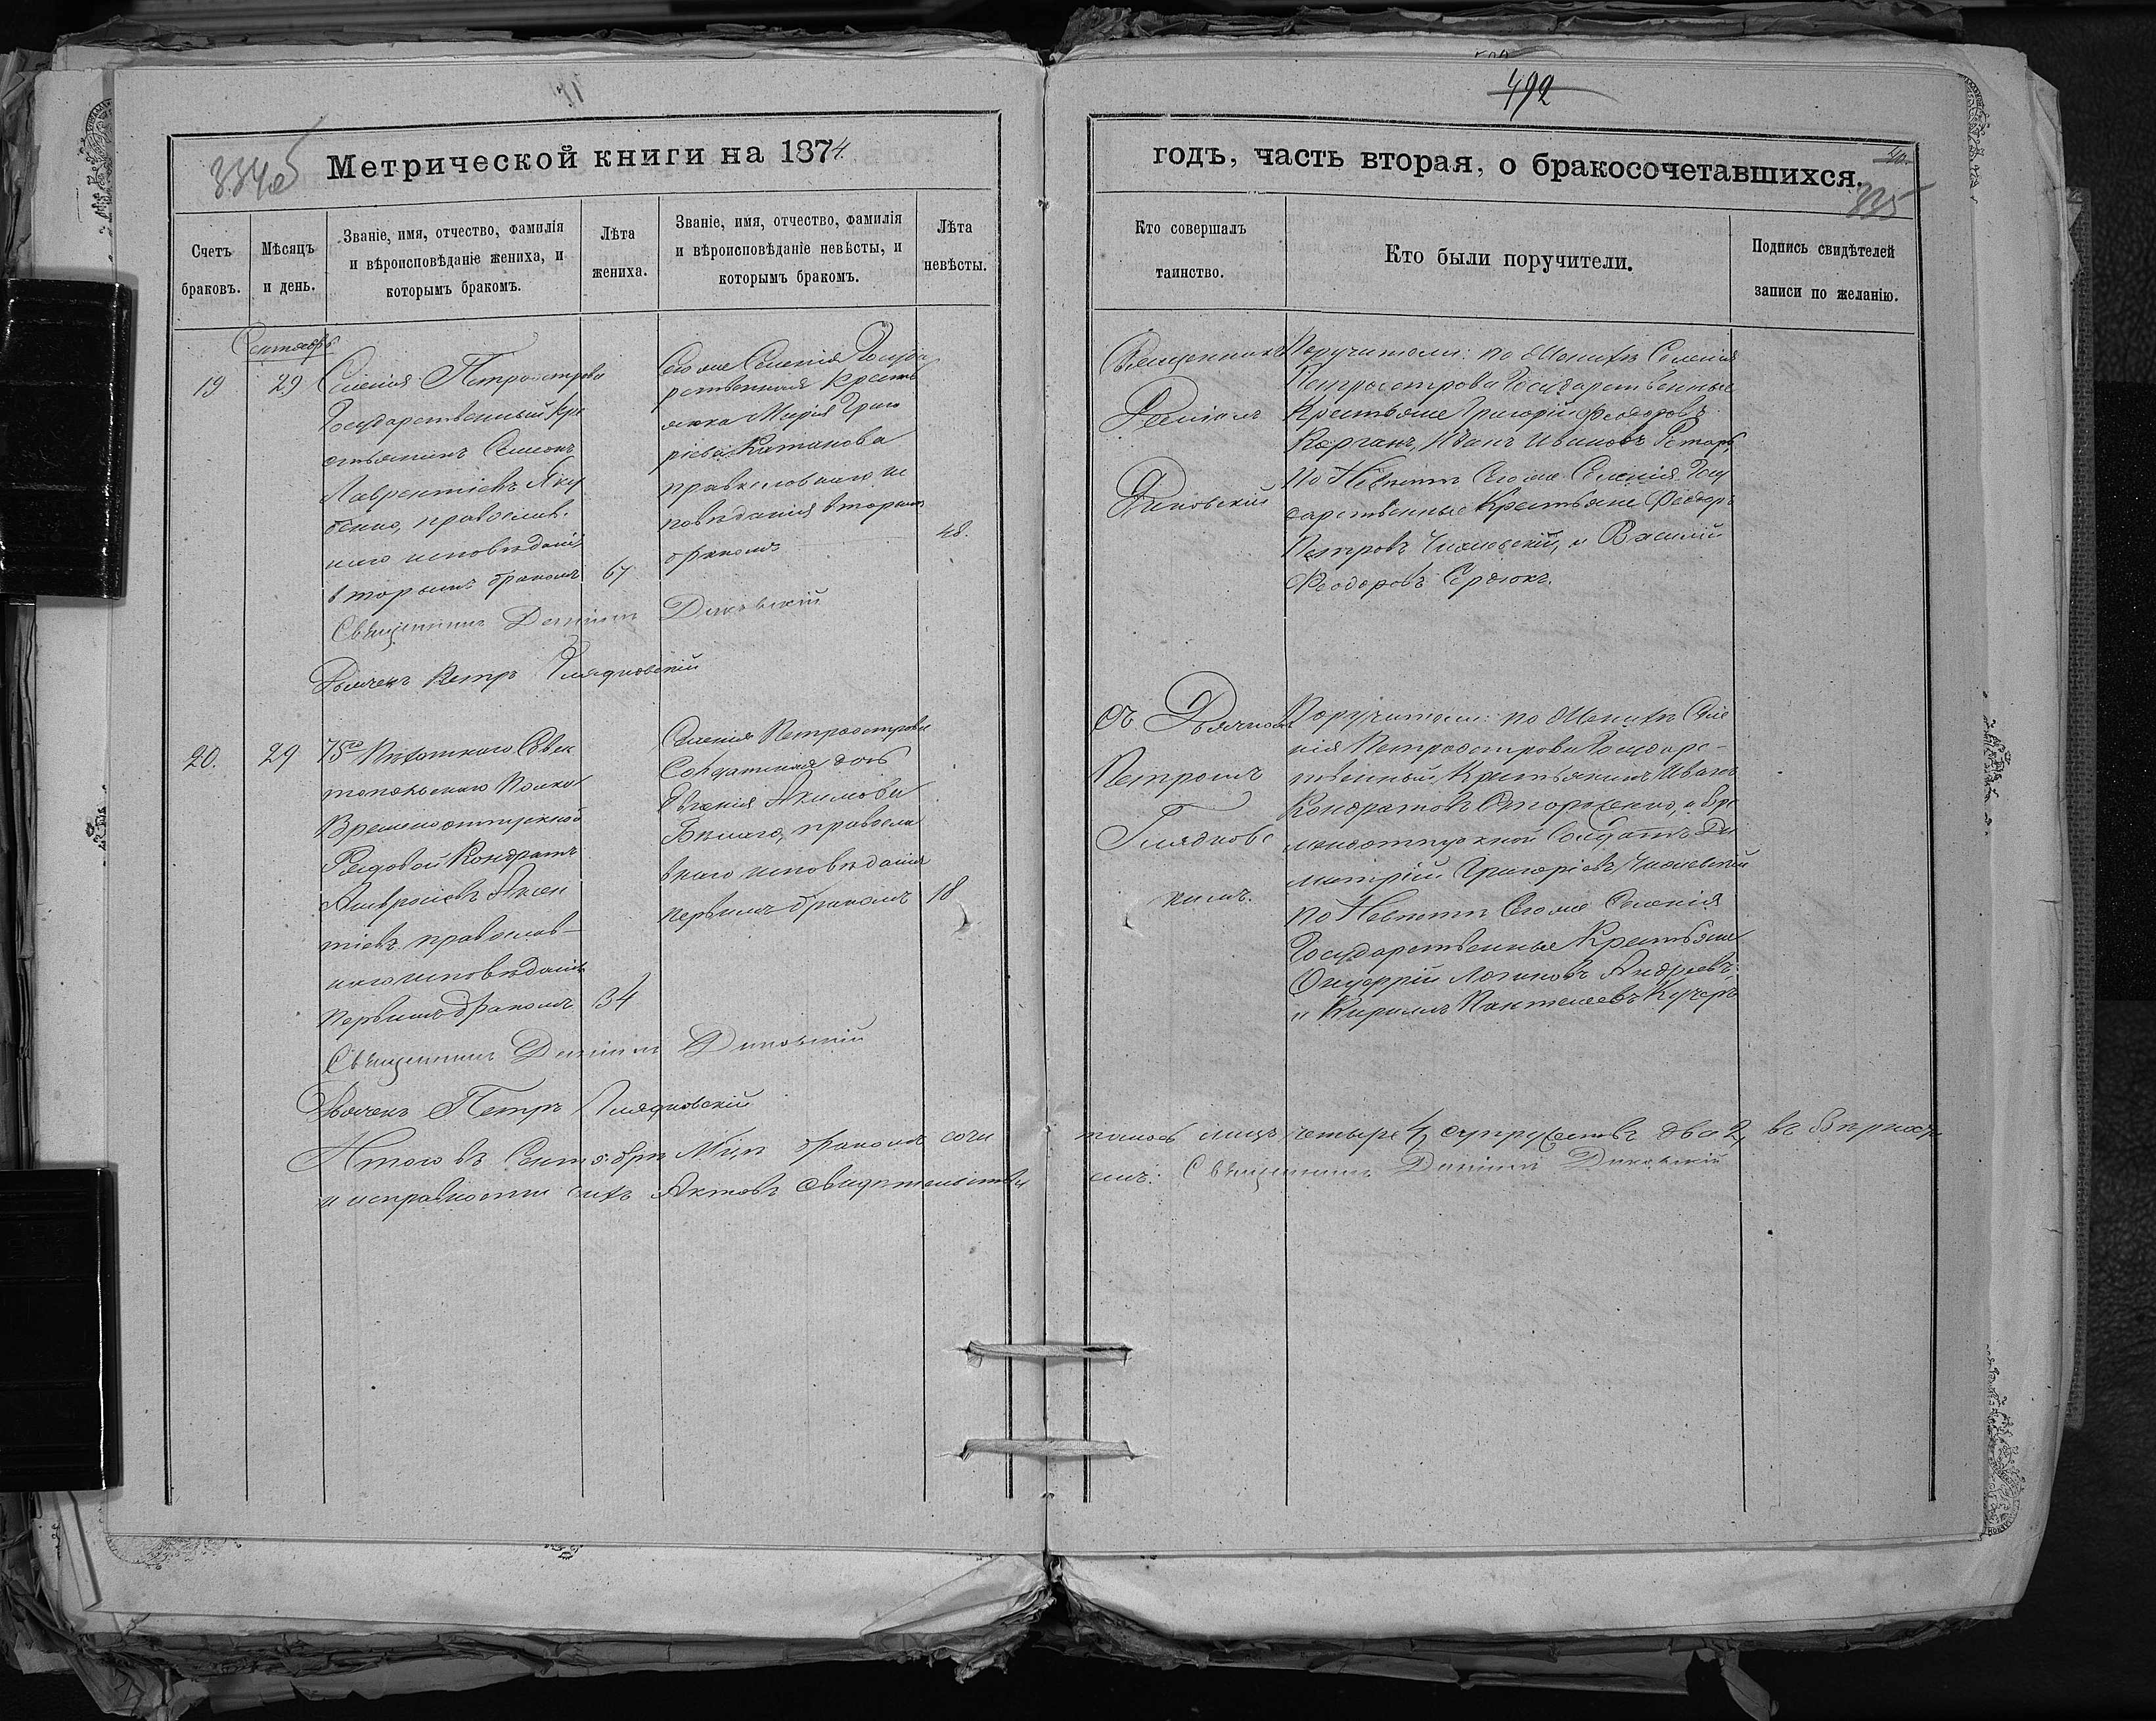 492
334об
Метрической книги на 1874.
годъ, часть вторая, о бракосочетавшихся.
335
Счетъ браковъ.
Мѣсяцъ и день.
Званіе, имя, отчество, фамилія
и вѣроисповѣданіе жениха, и
которымъ бракомъ.
Лѣта
жениха.
Званіе, имя, отчество, фамилія
и вѣроисповѣданіе невѣсты, и
которымъ бракомъ.
Лѣта
невѣсты.
Кто совершалъ
таинство.
Кто были поручители.
Подпись свидѣтелей
записи по желанію.
Сентябрь
19
29
Селенія Петроострова
Государственный кре
стьянинъ Симеонъ
Лаврентіевъ Яку
бенко, православ-
наго исповѣданія
вторымъ бракомъ
67
Сего же Селенія Госуда
рственная кресть
янка Марія Григо
ріева Катанова
православнаго ис
повѣданія вторымъ
бракомъ
48.
Священникъ
Даніилъ
Диковскій
Поручители: по Женихѣ Селенія
Петроострова Государственные
Крестьяне Григорій Феодоровъ
Иванъ Ивановъ
по Невѣстѣ Сего же Селенія Госу
дарственные Крестьяне Феодоръ
Петровъ и Василій
Феодоровъ Сердюкъ.
Священникъ Даніилъ Диковскій
Дьячекъ Петръ Глядковскій
20.
29
75го Пѣхотнаго Севас
топольскаго Полка
Временноотпускной
Рядовой Кондратъ
Амвросіевъ Аксен
тіевъ православ-
наго исповѣданія
первымъ бракомъ
34
Селенія Петроострова
Солдатская дочь
Евгенія Акимова
православ
внаго исповѣданія
первымъ бракомъ
18
съ Дьячкомъ
Петромъ
Глядковс
кимъ.
Поручители: по Женихѣ Селе
нія Петроострова Государс-
твенный Крестьянинъ Иванъ
Кондратовъ и Вре
менноотпускной Солдатъ Ди
митрій Григоріевъ
по Невѣстѣ Сего же Селенія
Государственные Крестьяне
Онуфрій Логиновъ Андреевъ,
и Кириллъ Пантелеевъ Кучеръ
Священникъ Даніилъ Диковскій
Дьячекъ Петръ Глядковскій
Итого въ Сентябрѣ М-цѣ бракомъ соче
талось лицъ четыре 4, супружествъ два 2, въ вѣрности
и исправности сихъ Актовъ свидѣтельству
емъ: Священникъ Даніилъ Диковскій